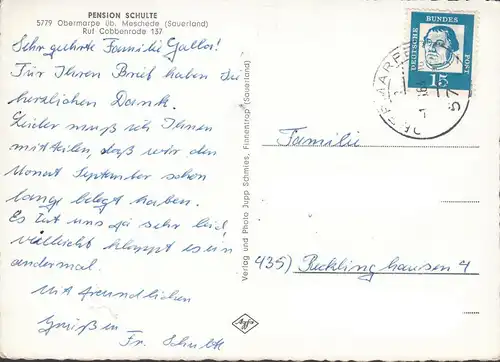 PENSION SCHULTE
5779 Obermarpe üb. Meschede (Sauerland)
Ruf Cobbenrode 137
Sehr geehrte Familie Gallos!
Für Ihren Brief haben Sie
herzlichen Dank.
Leider muß ich Ihnen
mitteilen, daß wir den
Monat September schon
lange belegt haben.
Es tut uns ja sehr leid,
vielleicht klappt es ein
andermal.
Mit freundlichen
Grüßen
Fr. Schulte
Verlag und Photo Jupp Schmies, Finnentrop (Sauerland)
Agfa
DEUTSCHE BUNDES POST
15
OBERMARPE
Familie
435) Recklinghausen 4